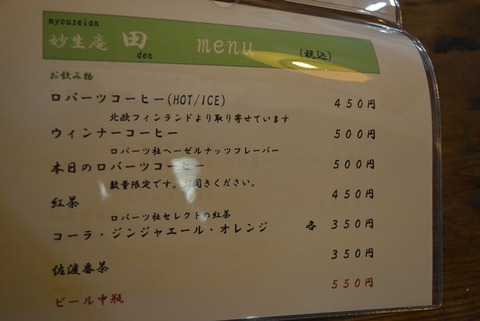 myouseian
妙生庵 田 menu (税込)
den
お飲み物
ロバーツコーヒー(HOT/ICE) 450円
北欧フィンランドより取り寄せています
ウィンナーコーヒー 500円
ロバーツ社ヘーゼルナッツフレーバー
本日のロバーツコーヒー 500円
数量限定です。お聞きください。
紅茶 450円
ロバーツ社セレクトの紅茶
コーラ・ジンジャエール・オレンジ 各 350円
佐渡番茶 350円
ビール中瓶 550円